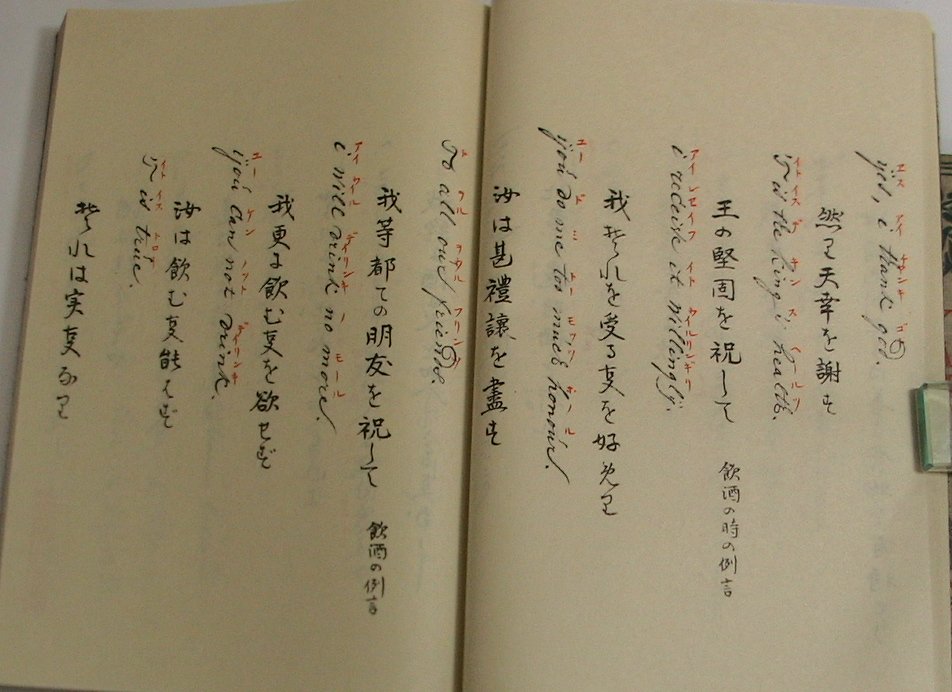 エス アイ ゴツド
yes, i thank god.
然り天幸を謝す
イト イス ゼ キン ス ヘールソ
it is the king's health.
王の堅固を祝して 飲酒の時の例言
アイ レセイフ イト ウイルリンギリ
i receive it willingly.
我それを受る事を好めり
ユー ド ミ トー モツツ ホノル
you do me too much honour.
汝は甚禮讓を盡す
ト ヲール ヲウル フリンヅ
to all our friends.
我等都ての朋友を祝して 飲酒の例言
アイ ウイル デイリンキ ノ モール
i will drink no more.
我更に飲む事を欲せず
ユー ケン ノット デイリンキ
you can not drink.
汝は飲む事能はず
イト イス トロウ
it is true.
それは実事なり